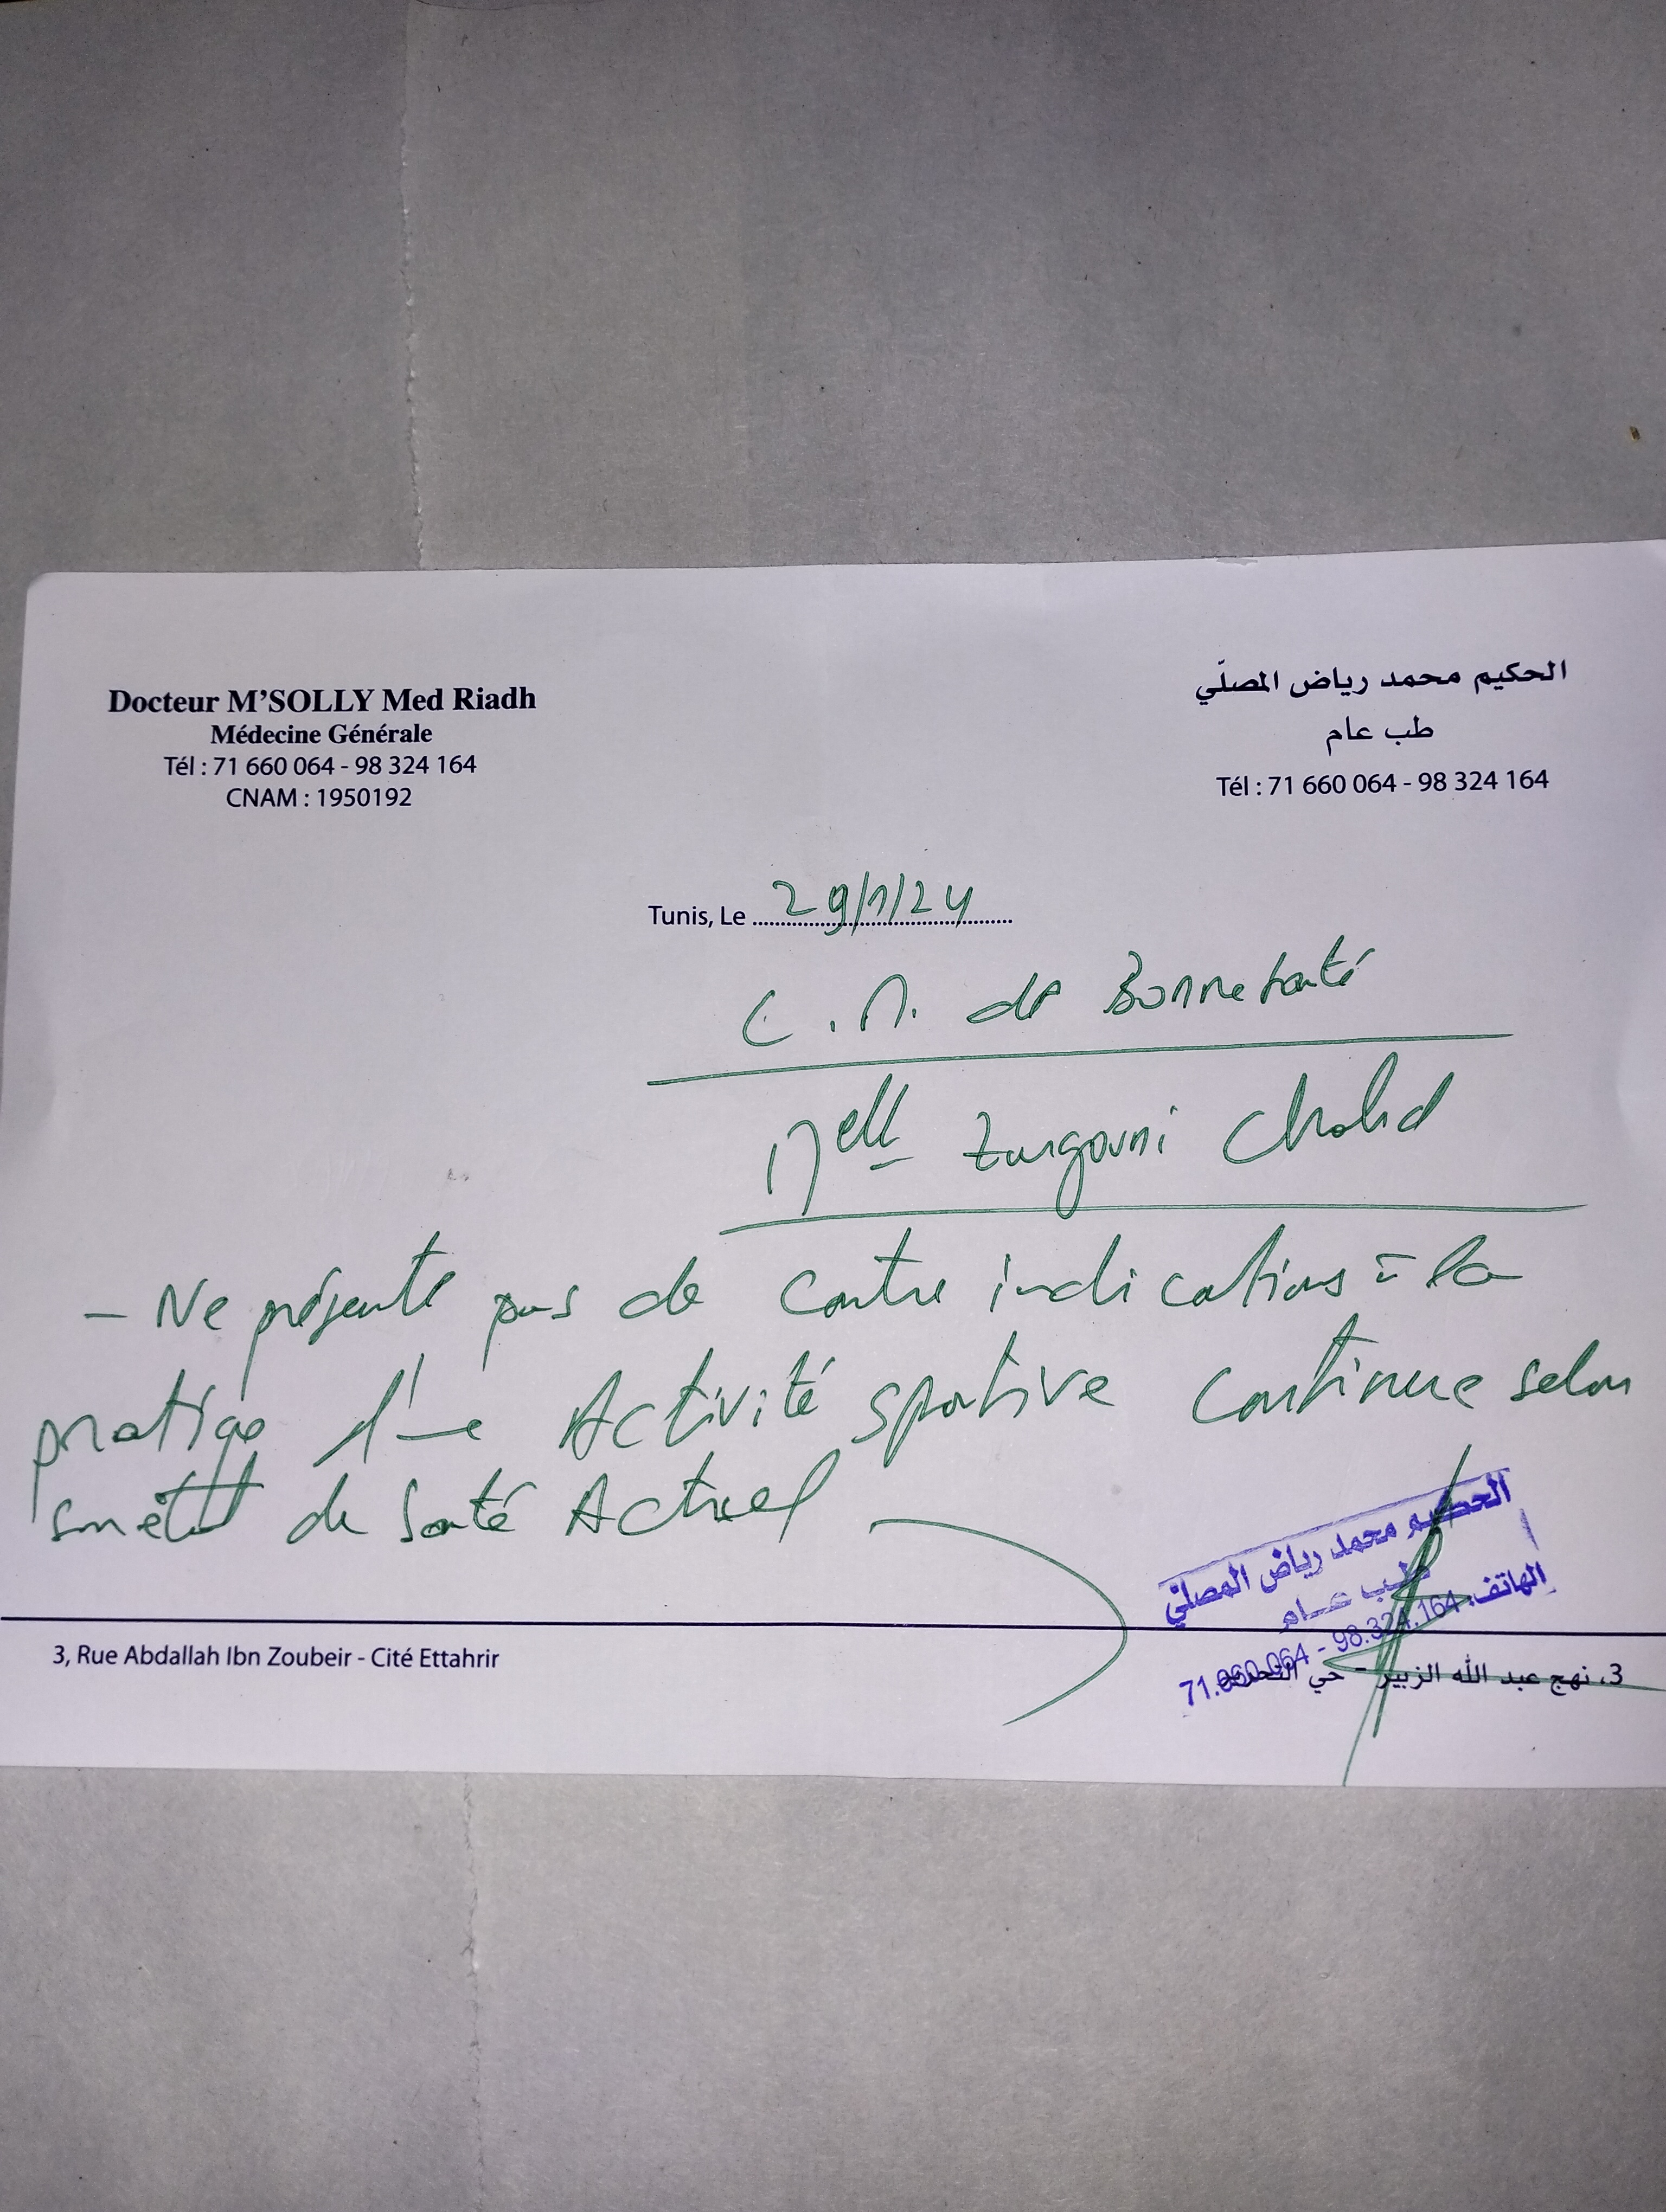 Docteur M'SOLLY Med Riadh
Médecine Générale
Tél : 71 660 064 - 98 324 164
CNAM : 1950192
الحكيم محمد رياض المصلّي
طب عام
Tél : 71 660 064 - 98 324 164
Tunis, Le 29/1/24
C.M. de Bonne santé
Melle
- Ne présente pas de contre indications à la
pratique d'une Activité sportive continue selon
son état de santé Actuel
الحكيم محمد رياض المصلي
طب عام
الهاتف: 98.324.164 - 71.660.064
3, Rue Abdallah Ibn Zoubeir - Cité Ettahrir
3، نهج عبد الله الزبير - حي التحرير